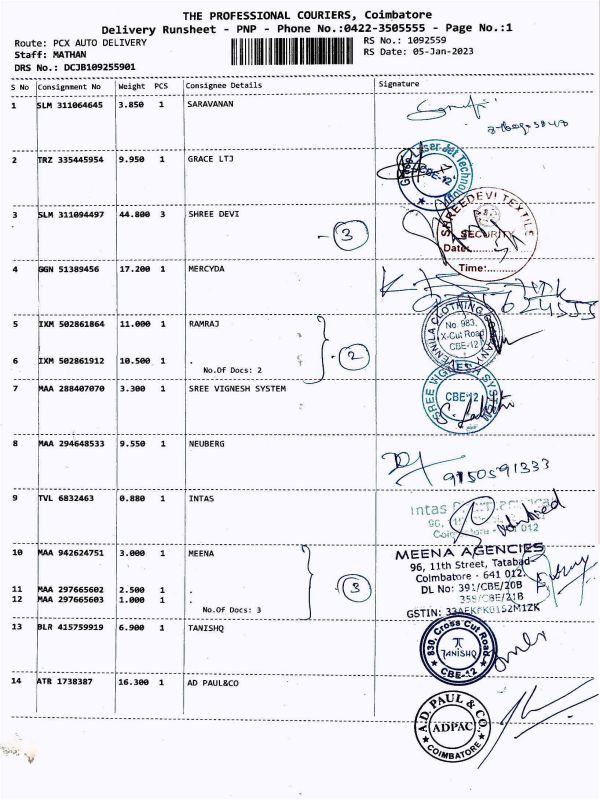 THE PROFESSIONAL COURIERS, Coimbatore
Delivery Runsheet - PNP - Phone No.:0422-3505555 - Page No.:1
Route: PCX AUTO DELIVERY
Staff: MATHAN
DRS No.: DCJB109255901
RS No.: 1092559
RS Date: 05-Jan-2023
S No Consignment No Weight PCS Consignee Details Signature
1 SLM 311064645 3.850 1 SARAVANAN
2 TRZ 335445954 9.950 1 GRACE LTJ
CBE-12
3 SLM 311094497 44.800 3 SHREE DEVI
3
SHREEDEVI TEXTILE
SECURITY
Date:
Time:
4 GGN 51389456 17.200 1 MERCYDA
5 IXM 502861864 11.000 1 RAMRAJ
VENNILA CLOTHING COMPANY
No. 983,
X-Cut Road
CBE-12
6 IXM 502861912 10.500 1 .
No.Of Docs: 2
2
7 MAA 288407070 3.300 1 SREE VIGNESH SYSTEM
SREE VIGNESH SYSTEM
CBE-12
8 MAA 294648533 9.550 1 NEUBERG
9150591333
9 TVL 6832463 0.880 1 INTAS
Intas
96,
012
10 MAA 942624751 3.000 1 MEENA
11 MAA 297665602 2.500 1 .
12 MAA 297665603 1.000 1 .
No.Of Docs: 3
3
MEENA AGENCIES
96, 11th Street, Tatabad
Coimbatore - 641 012.
DL No: 391/CBE/20B
359/CBE/21B
GSTIN:
13 BLR 415759919 6.900 1 TANISHQ
830, Cross Cut Road
TANISHQ
CBE-12
14 ATR 1738387 16.300 1 AD PAUL&CO
A.D. PAUL & CO.
ADPAC
COIMBATORE